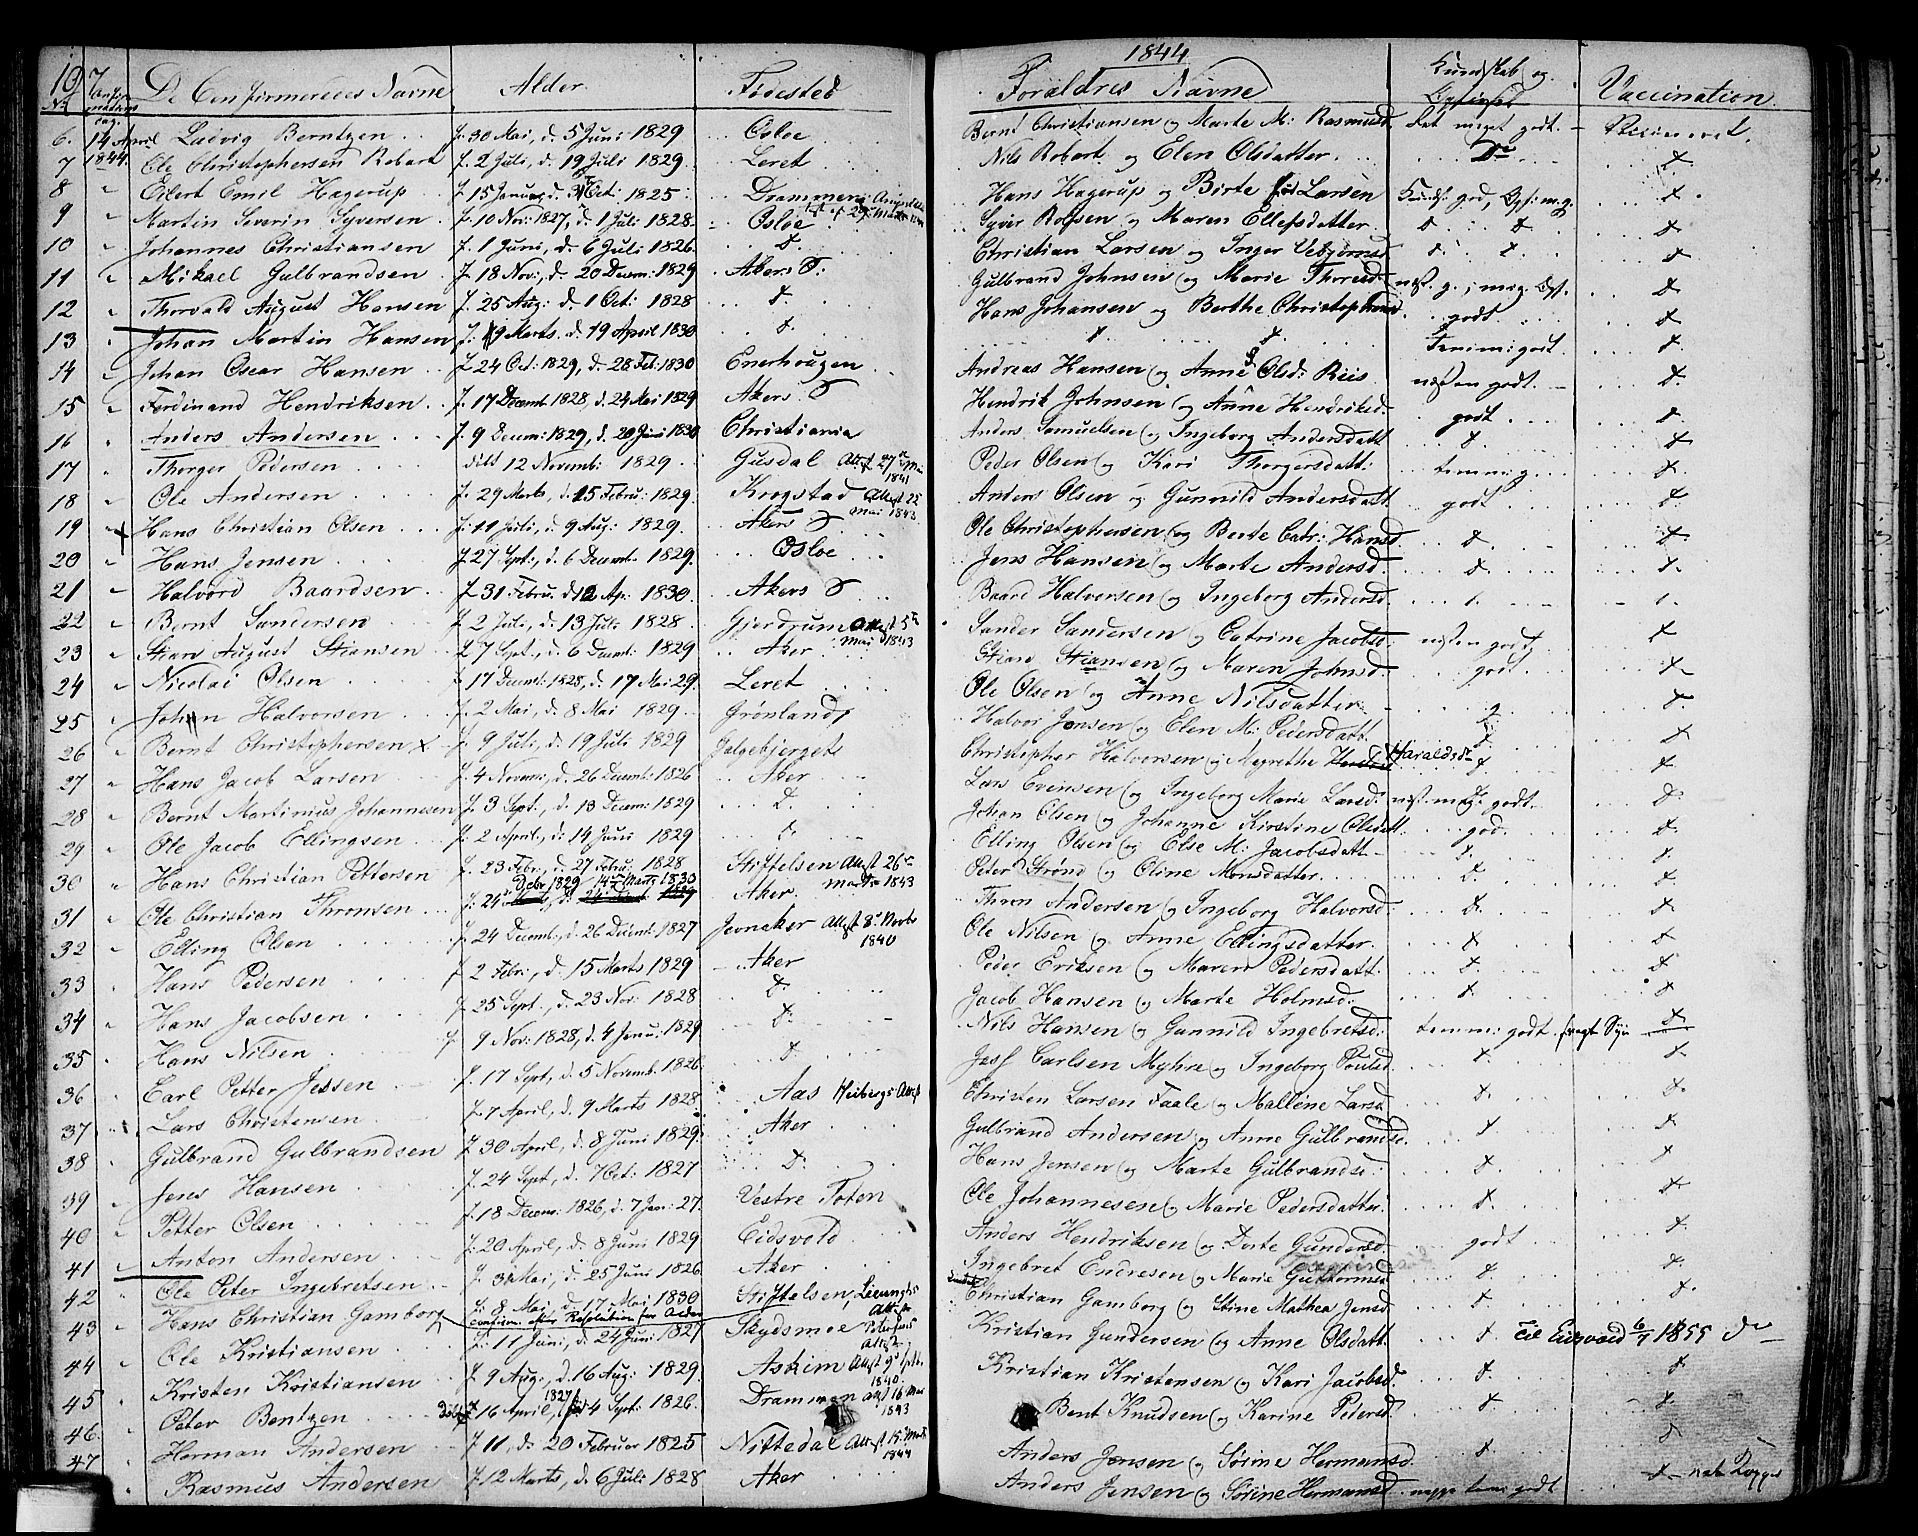 1844
10 7
No. Confirmations dag. De Confirmeredes Navne Alder Fødested Forældres Navne Kundskab og Opførsel Vaccination
6. 14 April 1844 Ludvig Berntzen f. 30 Mai, d. 5 Juni 1829 Osloe Bernt Christiansen og Marte M: Rasmusd. Det meget godt
7 Ole Christophersen Robart f. 2 Juli, d. 19 Juli 1829 Leret Nils Robart og Elen Olsdatter Do d.
8 Eilert Emil Hagerup f. 15 Januar, d. Oct: 1825 Drammen Hans Hagerup og Birte Larsen Kundsk: god, Opf: m.g. d.
9 Martin Severin Syversen f. 10 Nov: 1827, d. 1 Juli 1828 Osloe Syver Rolfsen og Maren Ellefsdatter d. d. d.
10 Johannes Christiansen f. 1 Juni, d. 6 Juli 1826 d. Christian Larsen og Inger d. d. d.
11 Mikael Gulbrandsen f. 18 Nov:, d. 20 Decm: 1829 Akers S: Gulbrand Johnsen og Marie Thoresd. næst. g., meg. Opf. d.
12 Thorvald August Hansen f. 25 Aug: d. 1 Oct: 1828 d. Hans Johansen og Berthe Christophersd godt d.
13 Johan Martin Hansen f. 9 Marts, d. 19 April 1830 d. d. d. Temm: godt d.
14 Johan Oscar Hansen f. 24 Oct: 1829, d. 28 Feb: 1830 Enerhougen Andreas Hansen og Anne Olsd: Riis næsten godt d.
15 Ferdinand Hendriksen f. 17 Decemb. 1828, d. 24 Mai 1829 Akers S Hendrik Johnsen og Anne Hendriksd. godt d.
16 Anders Andersen f. 9 Decem: 1829, d. 20 Juni 1830 Christiania Anders Samuelsen og Ingeborg Andersdatt d. d.
17 Thorger Pedersen dito 12 Novemb: 1829 Gusdal Attest 27 Mai 1841 Peder Olsen og Kari Thorgersdatt: temmelig d.
18 Ole Andersen f. 29 Marts, d. 15 Febru: 1829 Krogstad Attest 22 Mai 1843 Anders Olsen og Gunnild Andersdatt godt d.
19 Hans Christian Olsen f. 11 Juli, d. 9 Aug: 1829 Akers S Ole Christophersen og Berte Catr: Hansd d. d.
20 Hans Jensen f. 27 Sept:, d. 6 Decemb: 1829 Osloe Jens Hansen og Marte Andersd. d. d.
21 Halvord Baardsen f. 31 Febru. d. 12 Ap: 1830 Akers S Baard Halvorsen og Ingeborg Andersd. d. d.
22 Bernt Sandersen f. 2 Juli, d. 13 Juli 1828 Gjerdrum Attest 5te Mai 1843 Sander Sandersen og Catrine Jacobsd næsten godt d.
23 Stian August Stiansen f. 7 Sept:, d. 6 Decemb: 1829 Aker Stian Stiansen og Maren Johnsd. godt d.
24 Nicolai Olsen f. 17 Decemb: 1828, d. 17 Mai 29. Leret Ole Olsen og Anne Nilsdatter d.
25 Johan Halvorsen f. 2 Mai, d. 8 Mai 1829 Grønland Halvor Jensen og Elen M: Pedersdatt d. d.
26 Bernt Christophersen f. 9 Juli, d. 19 Juli 1829 Galgebjerget Christopher Halvorsen og Megrethe Haraldsd. d. d.
27 Hans Jacob Larsen f. 4 Novem:, d. 26 Decemb: 1826 Aker Lars Evensen og Ingeborg Marie Larsd: næst. meg. godt d.
28 Bernt Martinius Johannesen f. 3 Sept:, d. 13 Decem: 1829 d. Johan Olsen og Johanne Kirstine Olsdatt: god. d.
29 Ole Jacob Ellingsen f. 2 April, d. 14 Juni 1829 d. Elling Olsen og Else M: Jacobsdatt d. d.
30 Hans Christian Pettersen f. 23 Febr:, d. 27 Febru: 1828 Stiftelsen Attest 26 Marts 1843 Peter Strønd og Oline Monsdatter d. d.
31 Ole Christian Thronsen f. 24 Debr 1829 14 Marts 1830 Aker Thron Andersen og Ingeborg Halvorsd: d. d.
32 Elling Olsen f. 24 Decemb:, d. 26 Decemb: 1827 Jevnaker Attest 8 Novbr 1840 Ole Nilsen og Anne Ellingsdatter d. d.
33 Hans Pedersen f. 2 Febr:, d. 15 Marts 1829 Aker Peder Eriksen og Maren Pedersdatt. d. d.
34 Hans Jacobsen f. 25 Sept:, d. 23 Nov: 1828 d. Jacob Hansen og Marte Holmsd: d. d.
35 Hans Nilsen f. 9 Nov: 1828, d. 4 Janu: 1829 d. Nils Hansen og Gunnild Ingebretsd: temm: godt svagt Syn d.
36 Carl Petter Jessen f. 17 Sept, d. 5 Novemb. 1826 d. Jess Carlsen Myhre og Ingeborg Poulsd. d. d.
37 Lars Christensen f. 7 April, d. 9 Marts 1828 Aas Heibergs Attest Christen Larsen Faale og Mallene Larsd d. d.
38 Gulbrand Gulbrandsen f. 30 April, d. 8 Juni 1829 Aker Gulbrand Andersen og Anne Gulbrandsd. d. d.
39 Jens Hansen f. 24 Sept, d. 7 Oct: 1827 d. Hans Jensen og Marte Gulbrandsd: d. d.
40 Petter Olsen f. 18 Decem: 1826, d. 7 Jan: 27. Vestre Toten Ole Johannesen og Marie Pedersdatter d. d.
41 Anton Andersen f. 20 April, d. 8 Juni 1829 Eidsvold Anders Hendriksen og Dorte Gundersd. godt d.
42 Ole Peter Ingebretsen f. 3 Mai, d. 25 Juni 1826 Aker Ingebret Endresen og Marie Guttormsd d. d.
43 Hans Christian Gamborg f. 8 Mai d. 17 Mai 1830 confirm. efter Resolution for Alder Stiftelsen, Attest Christian Gamborg og Stine Mathea Jensd. d. d.
44 Ole Kristiansen f. 11 Juni, d. 24 Juni 1827 Skydsmoe Kristian Gundersen og Anne Olsdatt d. Til Eidsvold 6/7 1855 do
45 Kristen Kristiansen f. 9 Aug:, d. 16 Aug: 1829 Askim Attest 9 Sptb. 1840 Kristian Kristensen og Kari Jacobsd. d. d.
46 Peter Bentzen Døbt 16 April, 1827 4 Sept: 1826 Drammen Attest 16 Mai 1843 Bent Knudsen og Karine Pedersd. d. d.
47 Herman Andersen f. 11, d. 20 Februar 1825 Nittedal Attest 15 1844 Anders Jensen og Sørine Hermansd. d. d.
Rasmus Andersen f. 12 Marts, d. 6 Juli 1828 Aker Anders Jensen og Sørine Hermansd. neppe temm: godt d. nat. Kopper